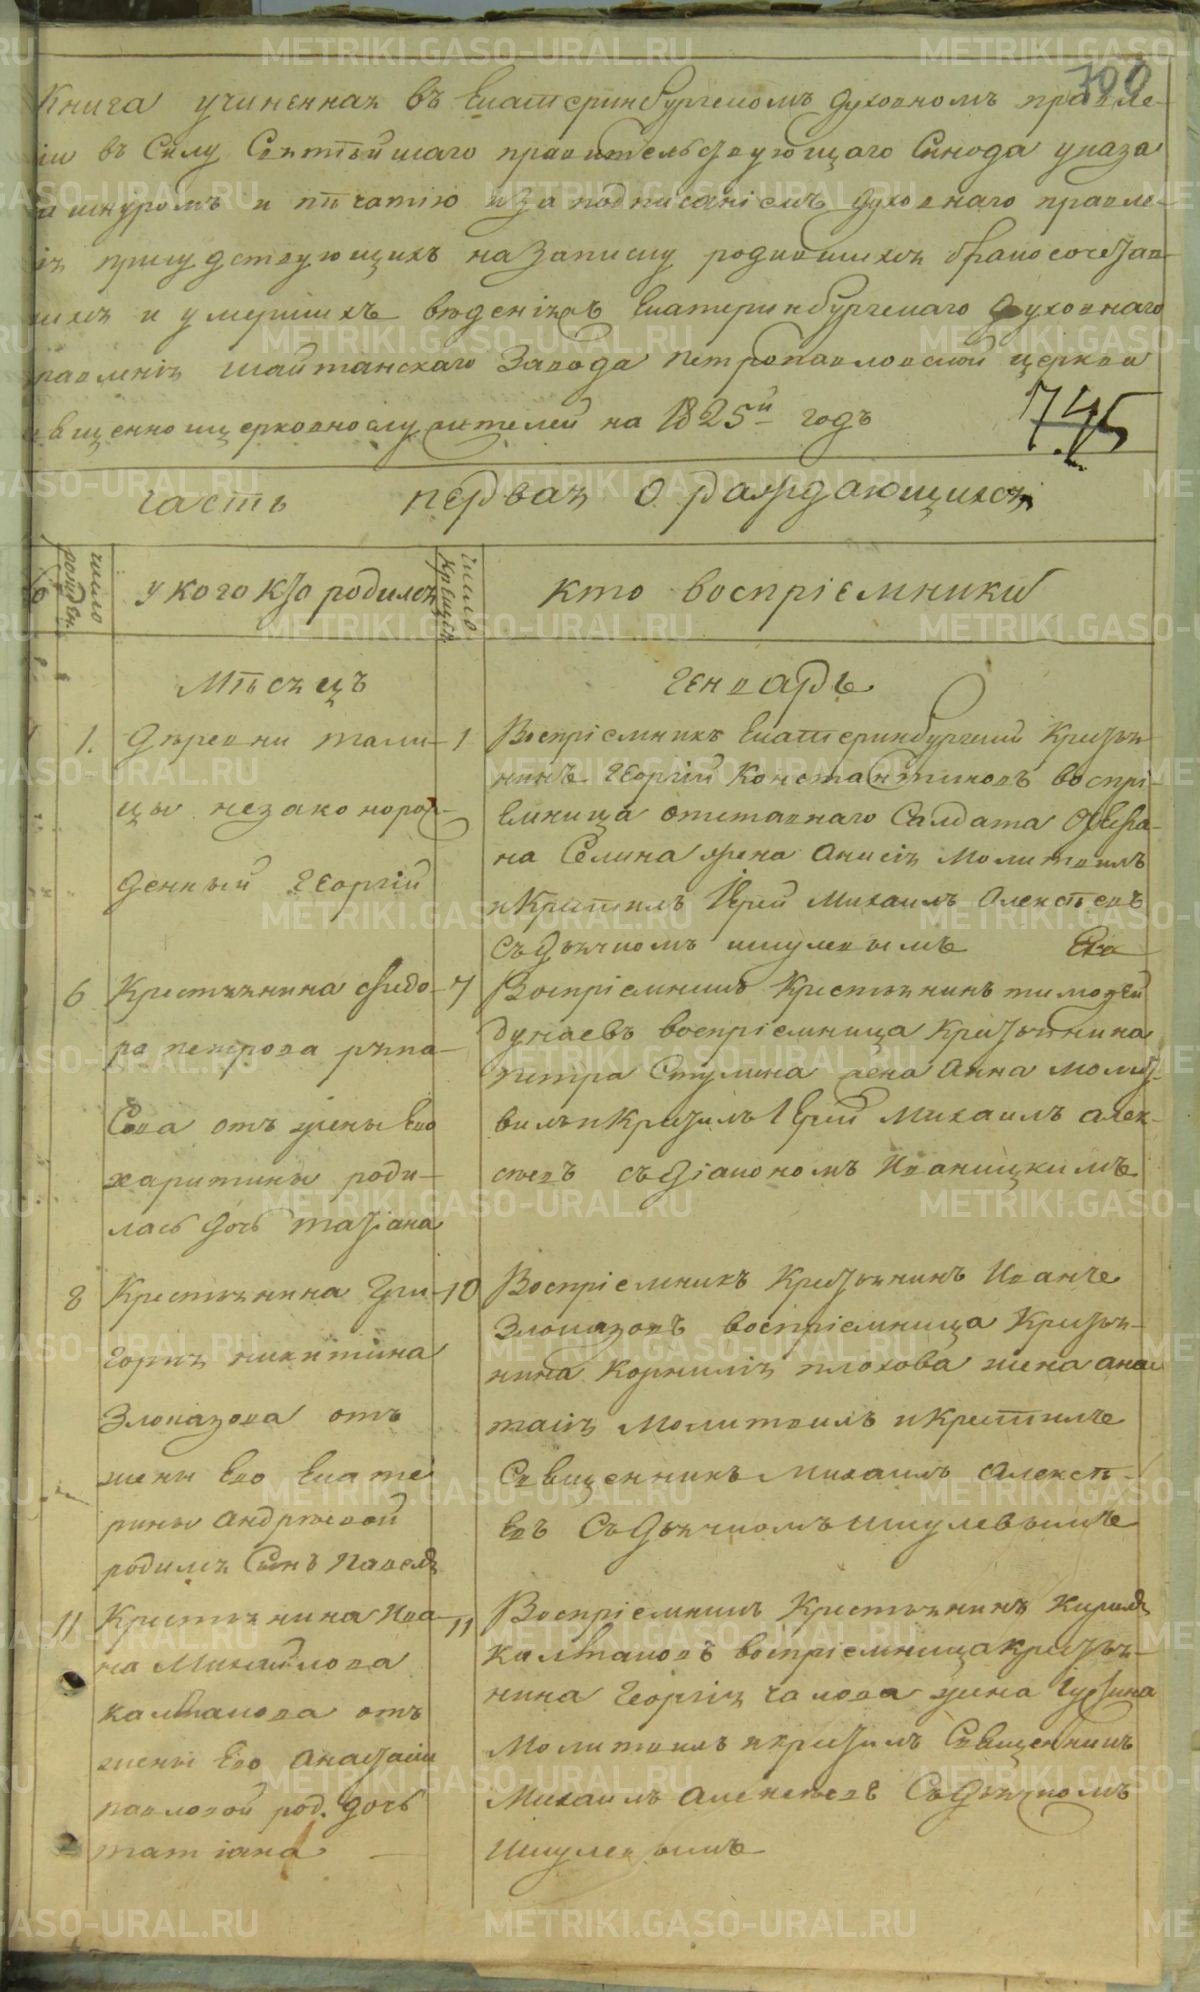 700
Книга учиненная въ Екатеринбургскомъ духовномъ правле-
іи въ Силу Святѣйшаго правительствующаго Синода указа
шнуромъ и пѣчатію иза подписаніемъ духовнаго правле-
ія присудствующихъ на записку родившихся бракосочетав-
шихся и умершихъ вѣденія Екатеринбургскаго духовнаго
равленія Шайтанскаго Завода Петропавловской церкви
священноицерковнослужителей на 1825й годъ
745
часть первая о раждающихся
число рожден.
у кого кто родился
число крещен.
кто воспріемники
Мѣсяцъ Генварь
1. Дѣревни тали-
цы незаконорож-
денный Георгій
1 Воспріемникъ Екатеринбургский Крестья-
нинъ Георгій Константиновъ воспрі-
емница отставнаго Салдата
на Селина жена Анисія Молитвилъ
и Крестилъ Іерей Михаилъ Алексѣевъ
съ Дьячкомъ Шкулевымъ
6 Крестьянина Федо-
ра петрова
отъ жены Ево
харитины роди-
лась дочь татіана
7 Воспріемникъ Крестьянинъ тимофей
дунаевъ воспріемница Крестьянина
петра Стулина жена Анна молит-
вилъ и Крестилъ Іерей Михаилъ алек-
сѣевъ съ Діакономъ Иваницкимъ
8 Крестьянина Гри-
горья никитина
Злоказова отъ
жены Ево Екате
рины Андрѣевой
родился Сынъ Павелъ
10 Воспріемникъ Крестьянинъ Иванъ
Злоказовъ воспріемница Крестья-
нина Корнилія плохова жена анас
тасія Молитвилъ и Крестилъ
Священникъ Михаилъ Алексѣ-
евъ Съ Дьячкомъ Шкулевымъ
11 Крестьянина Ива-
на Михайлова
калтанова отъ
жены Ево Анастасіи
павловой род. дочь
татіана
11 Воспріемникъ Крестьянинъ Кирилъ
калтановъ воспріемница крестья-
нина Георгія чалова жена Іустина
Молитвилъ и крестилъ Священникъ
Михаилъ Алексѣевъ Съ Дьячкомъ
Шкулевымъ
METRIKI.GASO-URAL.RU